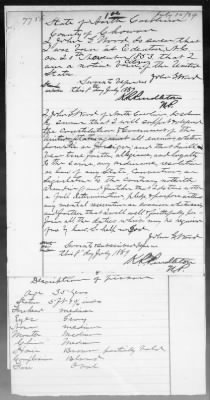 State of North Carolina
County of Chowan
I, John S. Wood do swear that
I was born at Edenton N.C.
on 21st November 1853, that I
am a native Citizen of the United
States
Sworn to before me
this 1st day July 1889
John S. Wood
N.P.
I John S. Wood of North Carolina do solemn
ly swear that I will support defend
the Constitution & Government of the
United States against all enemies whether
domestic or foreign, and that I will
bear true faith allegiance and loyalty
to the same, any ordinance, resolution
or law of any State Convention or
Legislature to the contrary notwith
standing and further that I do this with
a full determination pledge & purpose without
any mental reservation or evasion whatsoever
and further that I will well & faithfully per
form all the duties which may be required
of me by law. So help me God.
John S. Wood
Sworn to and subscribed before me
this 1st day July 1889
N.P.
Description of Person
Age 35 years
Stature 5 ft
Forehead Medium
Eyes Grey
Nose medium
Mouth Medium
Chin Medium
Hair Brown partially bald
Complexion Blonde
Face Oval